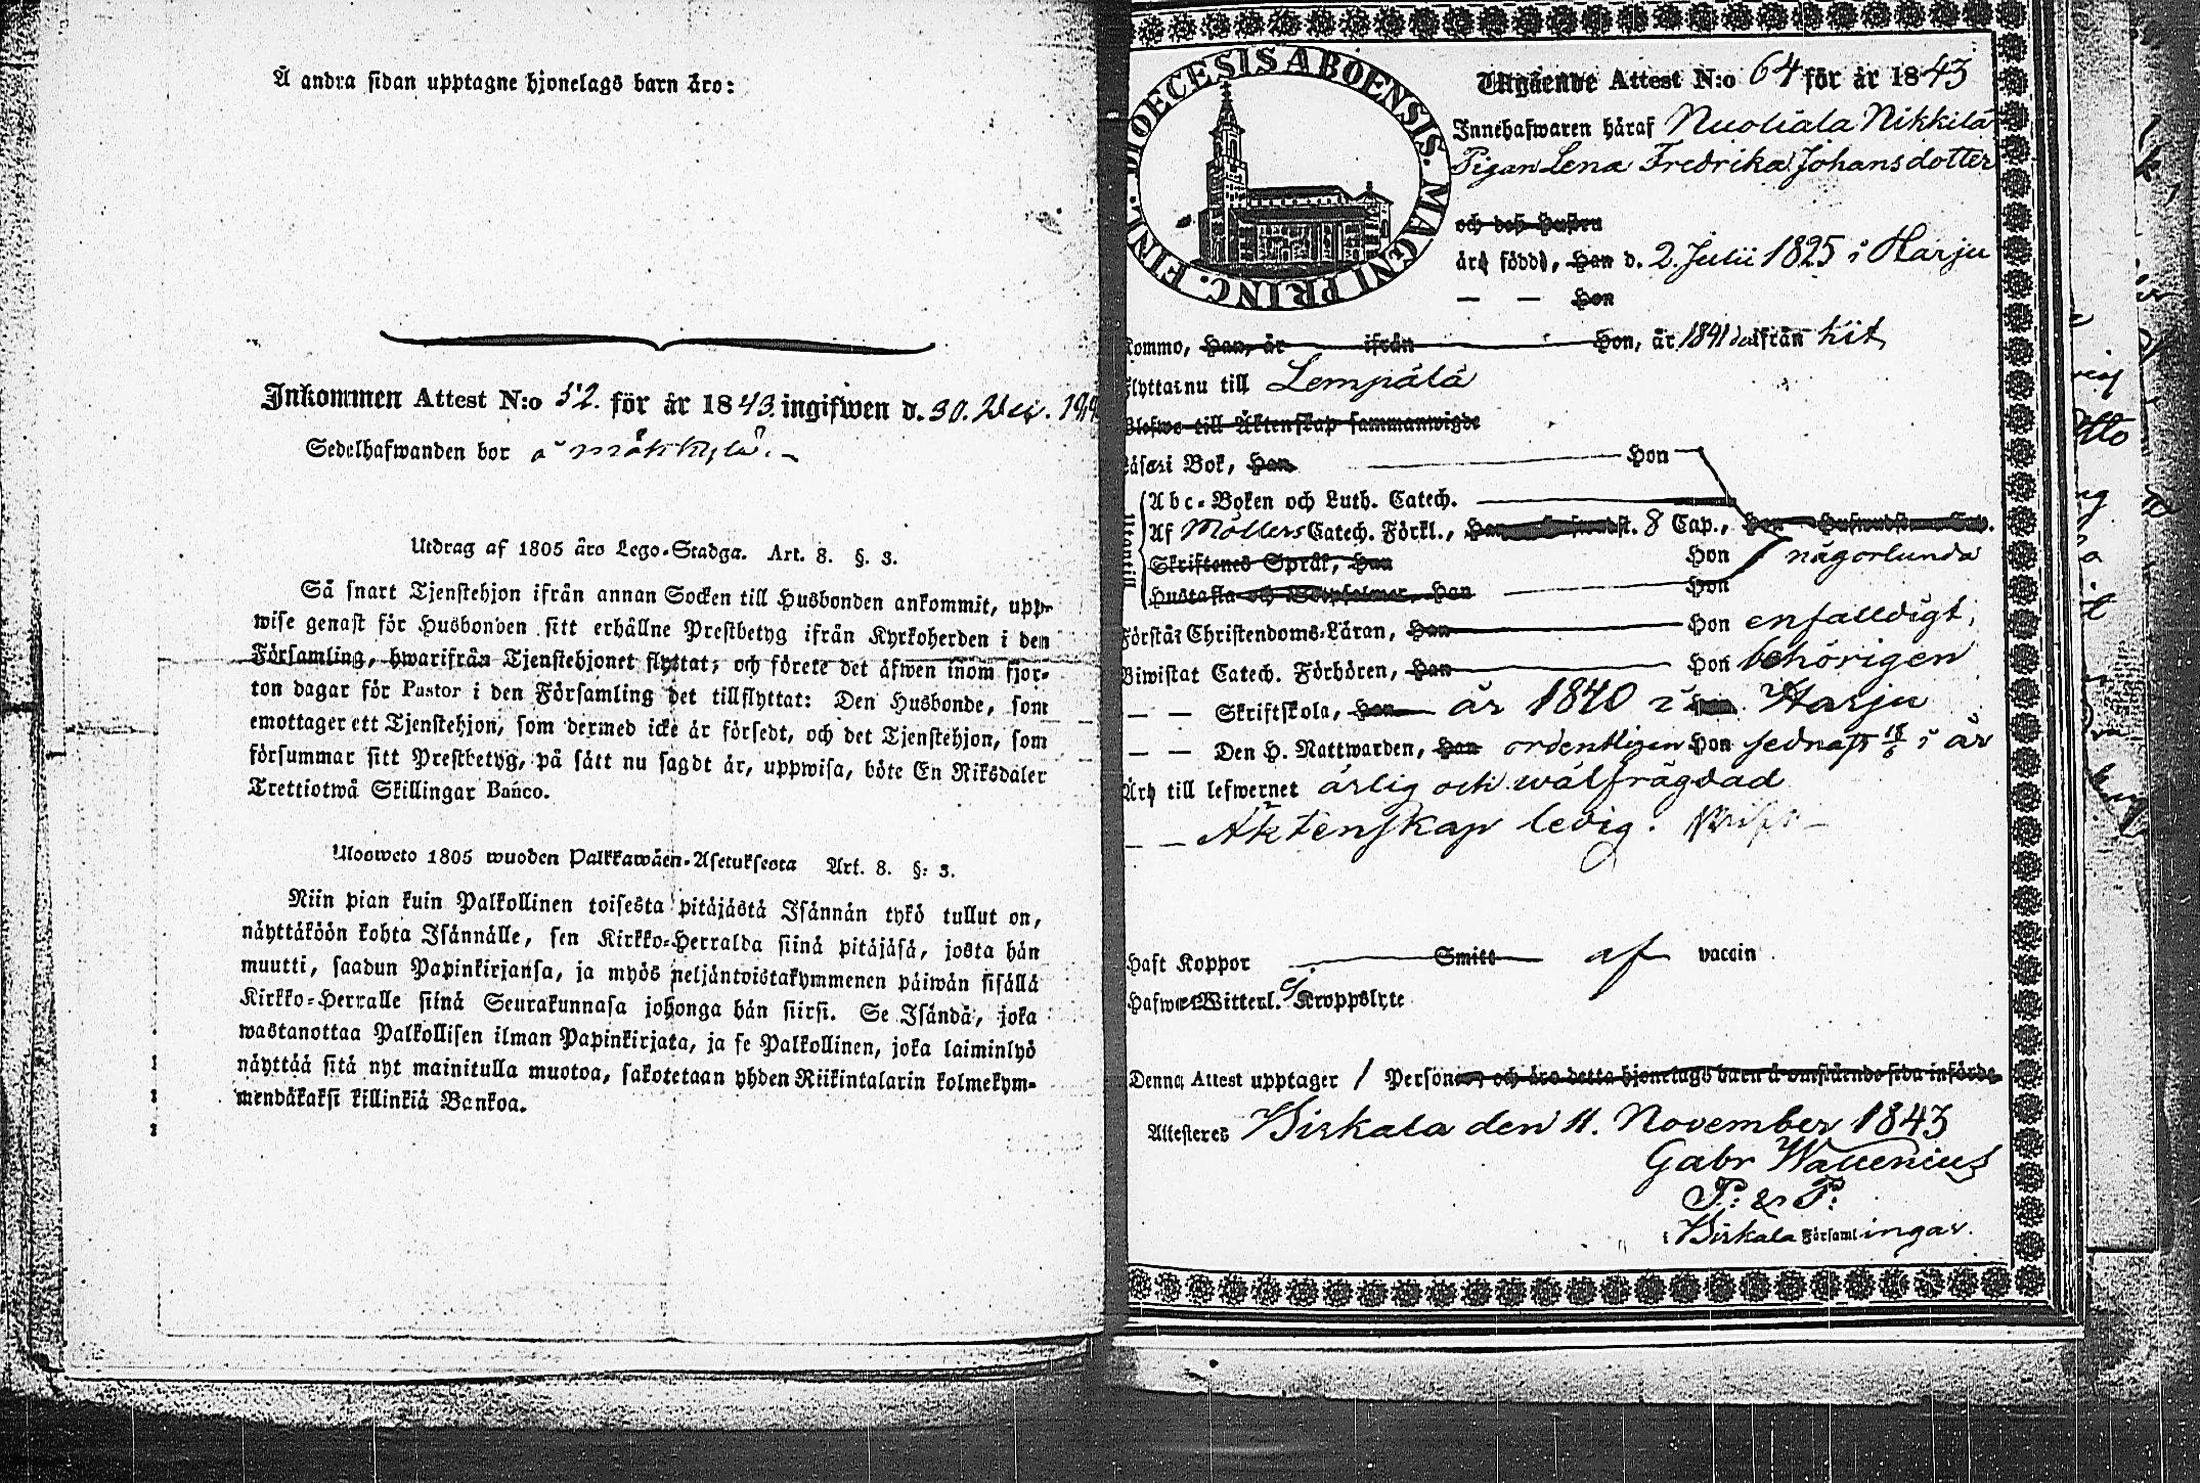 Å andra sidan upptagne hjonelags barn äro:
Inkommen Attest N:o 52. för år 1843. ingifwen d. 30. Dec.
Sedelhafwanden bor å Mäkkylä.
Utdrag af 1805 års Lego-Stadga. Art. 8. §. 3.
Så snart Tjenstehjon ifrån annan Socken till Husbonden ankommit, upp-
wise genast för Husbonden sitt erhållne Prestbetyg ifrån Kyrkoherden i den
Församling, hwarifrån Tjenstehjonet flyttat; och förete det äfwen inom fjor-
ton dagar för Pastor i den Församling det tillflyttat: Den Husbonde, som
emottager ett Tjenstehjon, som dermed icke är försedt, och det Tjenstehjon, som
försummar sitt Prestbetyg, på sätt nu sagdt är, uppwisa, böte En Riksdaler
Trettiotwå Skillingar Banco.
Ulosweto 1805 wuoden Palkkawäen-Asetuksesta Art. 8. §: 3.
Niin pian kuin Palkollinen toisesta pitäjästä Isännän tykö tullut on,
näyttäköön kohta Isännälle, sen Kirkko-Herralda siinä pitäjäsä, josta hän
muutti, saadun Papinkirjansa, ja myös neljäntoistakymmenen päiwän sisällä
Kirkko-Herralle siinä Seurakunnasa johonga hän siirsi. Se Isändä, joka
wastanottaa Palkollisen ilman Papinkirjata, ja se Palkollinen, joka laiminlyö
näyttää sitä nyt mainitulla muotoa, sakotetaan yhden Riikintalarin kolmekym-
mendäkaksi killinkiä Bankoa.
DIOECESIS ABOENSIS. MAGNI PRINC. FINL.
Utgående Attest N:o 64 för år 1843
Innehafwaren häraf Nuoliala Nikkilä
Pigan Lena Fredrika Johansdotter
och deß Hustru
är född, Han d. 2. Julii 1825 i Harju
— — Hon
Kommo, Han, år ifrån Hon, år 1841 ifrån hit,
flyttar nu till Lempälä
Blefwo till Äktenskap sammanwigde
Läser i Bok, Han Hon
Utantill
Abc-Boken och Luth. Catech.
Af Möllers Catech. Förkl., 8 Cap.,
Skriftenes Språk, Han Hon någorlunda
Hustafla och Botpsalmer, Han Hon
Förstår Christendoms-Läran, Han Hon enfalldigt,
Biwistat Catech. Förhören, Han Hon behörigen
— — Skriftskola, Han år 1840 i Harju
— — Den H. Nattwarden, Han ordentligen Hon sednast i år
Är till lefwernet ärlig och wälfrägdad
— — Äktenskap ledig.
Haft Koppor Smitt af vaccin
Hafwer Witterl. ej Kroppslyte
Denna Attest upptager 1 Person och äro detta hjonelags barn å omstående sida införde
Attesteres Birkala den 11. November 1843
Gabr Wallenius
P: & P:
i Birkala Församlingar.